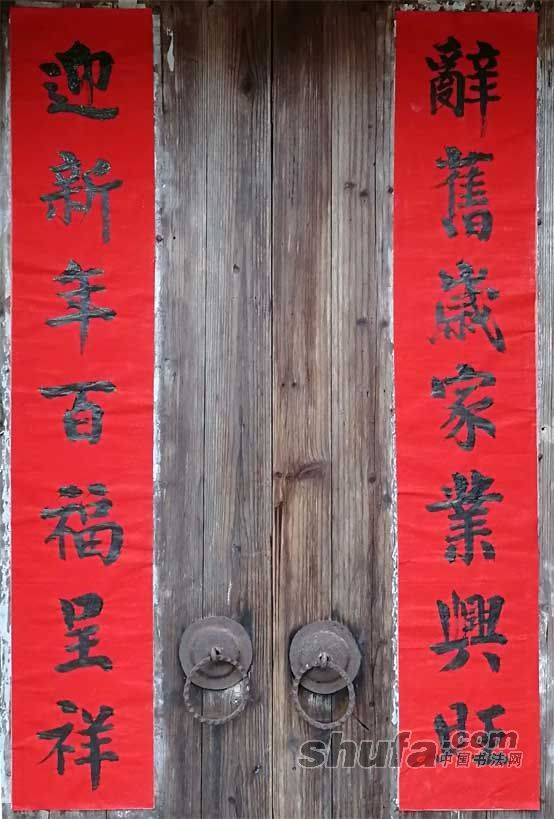 辭舊歲家業興
迎新年百福呈祥
shufa.com
中国书法网